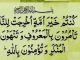 كُنْتُمْ خَيْرَ أُمَّةٍ أُخْرِجَتْ لِلنَّاسِ
تَأْمُرُونَ بِالْمَعْرُوفِ وَتَنْهَوْنَ عَنِ
الْمُنْكَرِ وَتُؤْمِنُونَ بِاللَّهِ